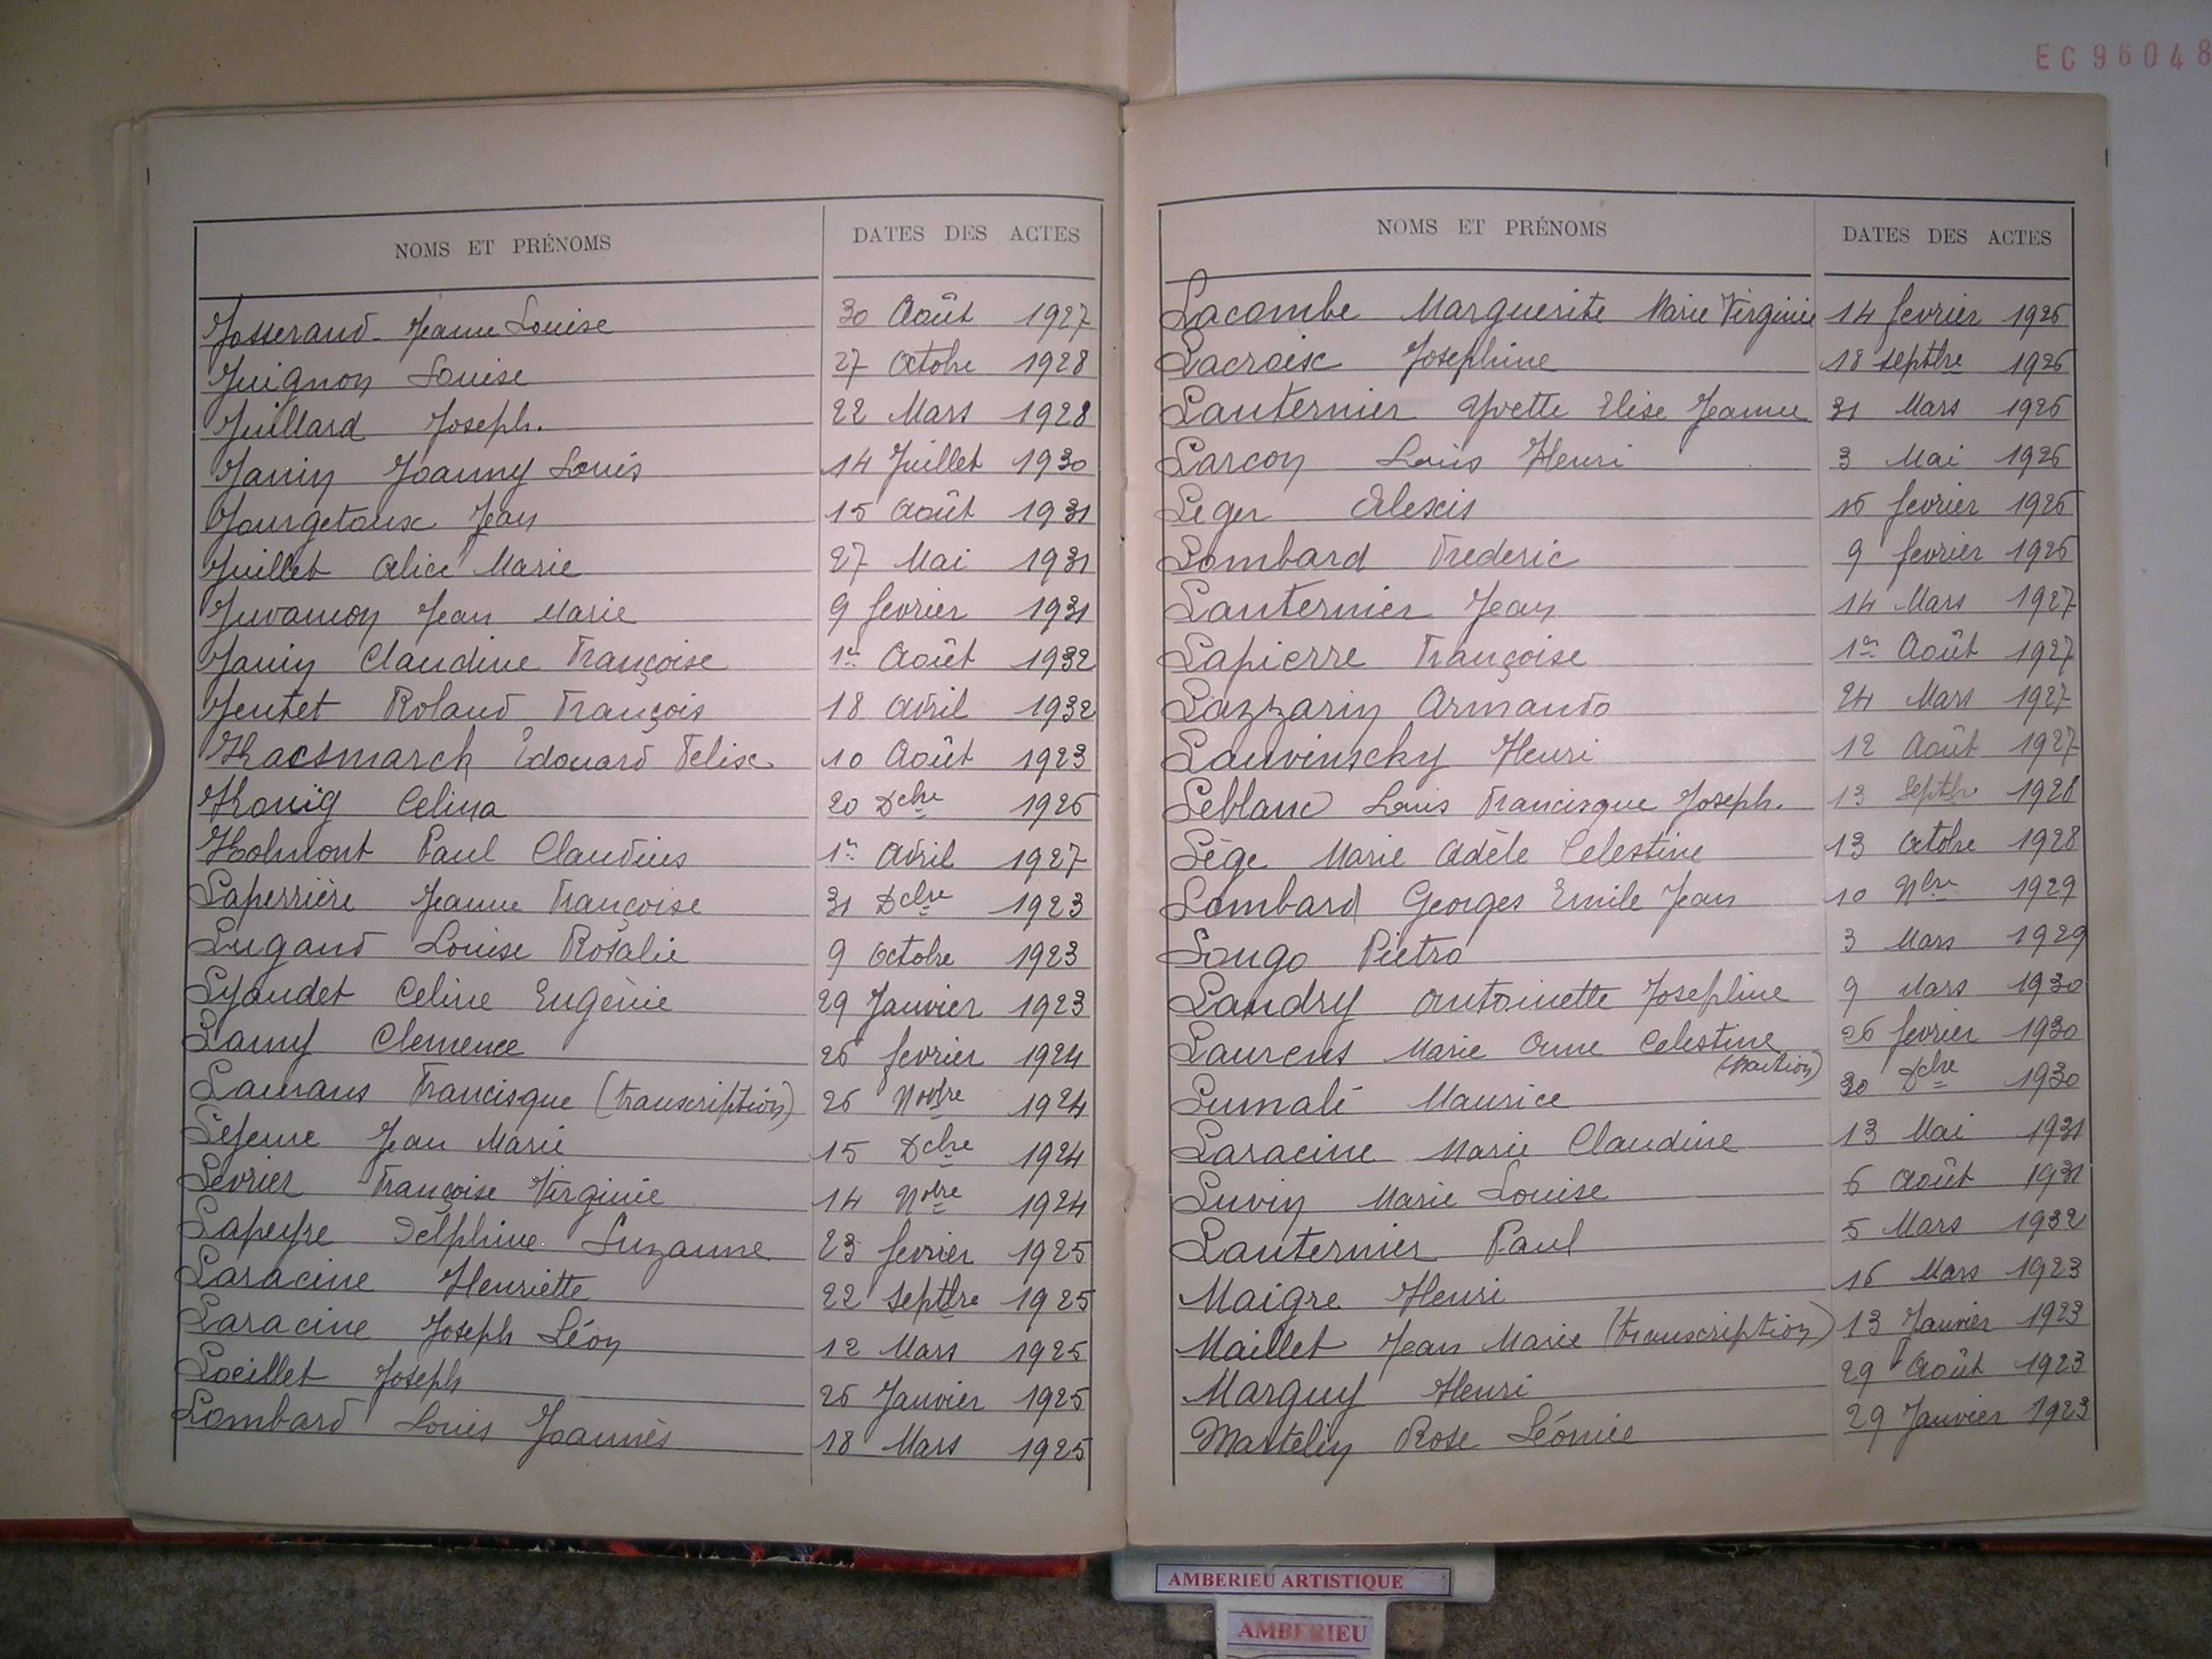 EC96048
NOMS ET PRÉNOMS DATES DES ACTES
Josserand Jeanne Louise 30 Août 1927
Juignon Louise 27 Octobre 1928
Juillard Joseph. 22 Mars 1928
Janin Joanny Louis 14 Juillet 1930
Jourgetoux Jean 15 Août 1931
Juillet Alice Marie 27 Mai 1931
Juvanon Jean Marie 9 fevrier 1931
Janin Claudine Françoise 1er Août 1932
Jentet Roland François 18 Avril 1932
Kacsmarck Edouard Felix 10 Août 1923
Konig Celina 20 Dcbre 1926
Kolmont Paul Claudius 1er Avril 1927
Laperrière Jeanne Françoise 31 Dcbre 1923
Lugand Louise Rosalie 9 Octobre 1923
Lyaudet Celine Eugènie 29 Janvier 1923
Lamy Clemence 26 fevrier 1924
Laurans Francisque (transcription) 26 Novbre 1924
Lejeune Jean Marie 15 Dcbre 1924
Levrier Françoise Virginie 14 Nobre 1924
Lapeyre Delphine Suzanne 23 fevrier 1925
Laracine Henriette 22 Septbre 1925
Laracine Joseph Léon 12 Mars 1925
Loeillet Joseph 26 Janvier 1925
Lombard Louis Joannès 18 Mars 1925
NOMS ET PRÉNOMS DATES DES ACTES
Lacombe Marguerite Marie Virginie 14 fevrier 1926
Lacroix Josephine 18 septbre 1926
Lanternier Yvette Elise Jeanne 31 Mars 1926
Larcon Louis Henri 3 Mai 1926
Leger Alexis 16 fevrier 1926
Lombard Frederic 9 fevrier 1926
Lanternier Jean 14 Mars 1927
Lapierre Françoise 1er Août 1927
Lazzarin Armando 24 Mars 1927
Lauvinscky Henri 12 Août 1927
Leblanc Louis Francisque Joseph. 13 Septbre 1928
Lège Marie Adèle Celestine 13 Octobre 1928
Lombard Georges Emile Jean 10 Nbre 1929
Longo Pietro 3 Mars 1929
Landry Antoinette Josephine 9 Mars 1930
Laurens Marie Anne Celestine 26 fevrier 1930
Lumalé Maurice 30 Dcbre 1930
Laracine Marie Claudine 13 Mai 1931
Luvin Marie Louise 6 Août 1931
Lanternier Paul 5 Mars 1932
Maigre Henri 16 Mars 1923
Maillet Jean Marie (transcription) 13 Janvier 1923
Marguy Henri 29 Août 1923
Martelin Rose Léonie 29 Janvier 1923
AMBERIEU ARTISTIQUE
AMBERIEU